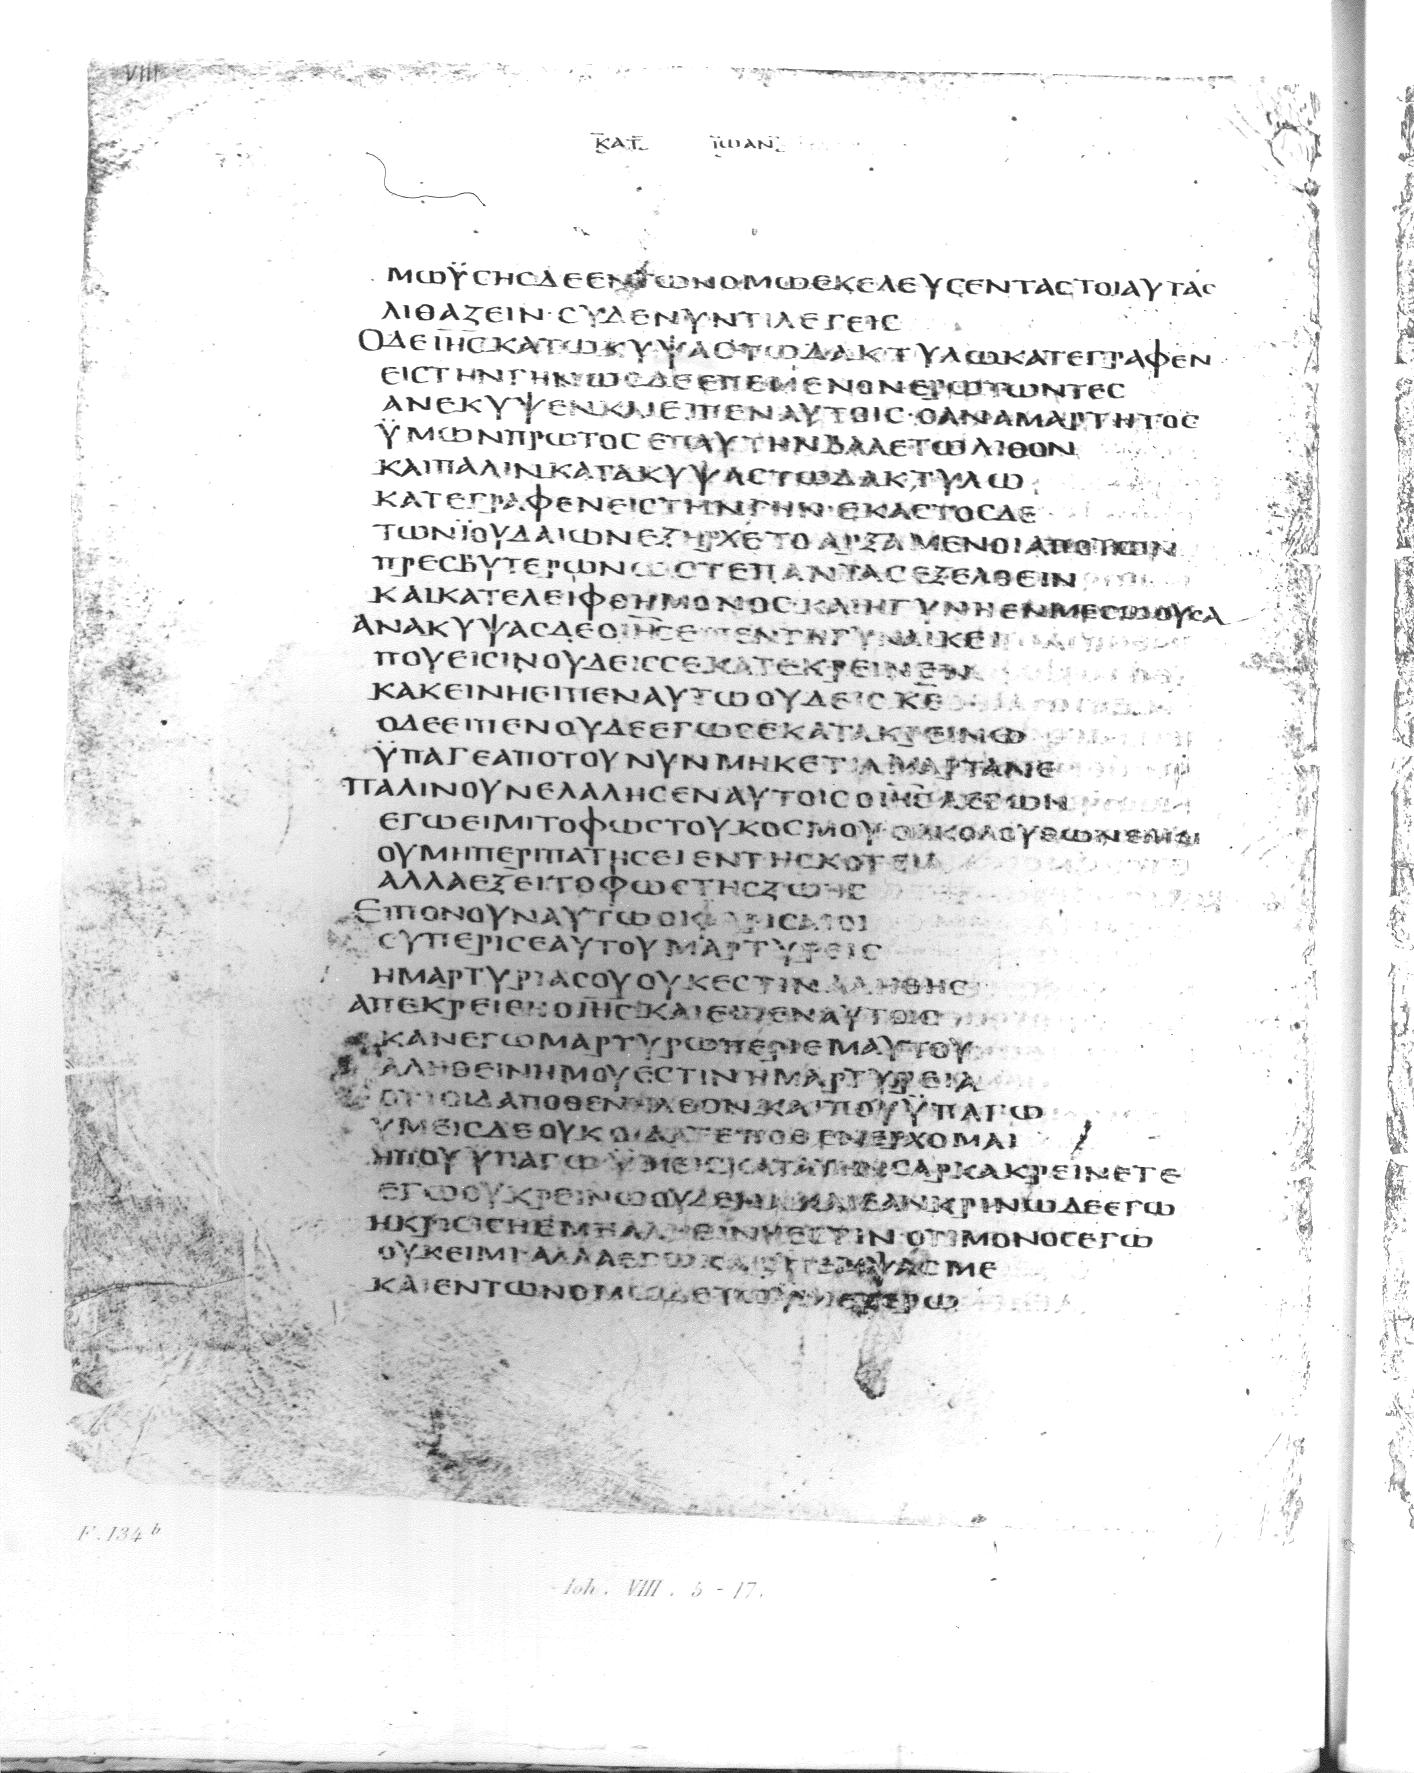 VIII
ΚΑΤ ΪΩΑΝ
ΜΩΫΣΗΣΔΕΕΝΤΩΝΟΜΩΕΚΕΛΕΥΣΕΝΤΑΣΤΟΙΑΥΤΑΣ
ΛΙΘΑΖΕΙΝ·ΣΥΔΕΝΥΝΤΙΛΕΓΕΙΣ
ΟΔΕΙΗΣΚΑΤΩΚΥΨΑΣΤΩΔΑΚΤΥΛΩΚΑΤΕΓΡΑΦΕΝ
ΕΙΣΤΗΝΓΗΝΩΣΔΕΕΠΕΜΕΝΟΝΕΡΩΤΩΝΤΕΣ
ΑΝΕΚΥΨΕΝΚΑΙΕΙΠΕΝΑΥΤΟΙΣ·ΟΑΝΑΜΑΡΤΗΤΟΣ
ΫΜΩΝΠΡΩΤΟΣΕΠΑΥΤΗΝΒΑΛΕΤΩΛΙΘΟΝ
ΚΑΙΠΑΛΙΝΚΑΤΑΚΥΨΑΣΤΩΔΑΚΤΥΛΩ
ΚΑΤΕΓΡΑΦΕΝΕΙΣΤΗΝΓΗΝ·ΕΚΑΣΤΟΣΔΕ
ΤΩΝΪΟΥΔΑΙΩΝΕΞΗΡΧΕΤΟΑΡΞΑΜΕΝΟΙΑΠΟΤΩΝ
ΠΡΕΣΒΥΤΕΡΩΝΩΣΤΕΠΑΝΤΑΣΕΞΕΛΘΕΙΝ
ΚΑΙΚΑΤΕΛΕΙΦΘΗΜΟΝΟΣ·ΚΑΙΗΓΥΝΗΕΝΜΕΣΩΟΥΣΑ
ΑΝΑΚΥΨΑΣΔΕΟΙΗΣΕΙΠΕΝΤΗΓΥΝΑΙΚΕΙ
ΠΟΥΕΙΣΙΝΟΥΔΕΙΣΣΕΚΑΤΕΚΡΕΙΝΕΝ
ΚΑΚΕΙΝΗΕΙΠΕΝΑΥΤΩΟΥΔΕΙΣΚΕ
ΟΔΕΕΙΠΕΝΟΥΔΕΕΓΩΣΕΚΑΤΑΚΡΕΙΝΩ
ΫΠΑΓΕΑΠΟΤΟΥΝΥΝΜΗΚΕΤΙΑΜΑΡΤΑΝΕ
ΠΑΛΙΝΟΥΝΕΛΑΛΗΣΕΝΑΥΤΟΙΣΟΙΗΣΛΕΓΩΝ
ΕΓΩΕΙΜΙΤΟΦΩΣΤΟΥΚΟΣΜΟΥ·ΟΑΚΟΛΟΥΘΩΝΕΜΟΙ
ΟΥΜΗΠΕΡΙΠΑΤΗΣΕΙΕΝΤΗΣΚΟΤΕΙΑ
ΑΛΛΑΕΞΕΙΤΟΦΩΣΤΗΣΖΩΗΣ
ΕΙΠΟΝΟΥΝΑΥΤΩΟΙΦΑΡΙΣΑΙΟΙ
ΣΥΠΕΡΙΣΕΑΥΤΟΥΜΑΡΤΥΡΕΙΣ
ΗΜΑΡΤΥΡΙΑΣΟΥΟΥΚΕΣΤΙΝΑΛΗΘΗΣ
ΑΠΕΚΡΕΙΘΗΟΙΗΣΚΑΙΕΙΠΕΝΑΥΤΟΙΣ
ΚΑΝΕΓΩΜΑΡΤΥΡΩΠΕΡΙΕΜΑΥΤΟΥ
ΑΛΗΘΕΙΝΗΜΟΥΕΣΤΙΝΗΜΑΡΤΥΡΕΙΑ
ΟΤΙΟΙΔΑΠΟΘΕΝΗΛΘΟΝΚΑΙΠΟΥΫΠΑΓΩ
ΥΜΕΙΣΔΕΟΥΚΟΙΔΑΤΕΠΟΘΕΝΕΡΧΟΜΑΙ
ΗΠΟΥΫΠΑΓΩΫΜΕΙΣΚΑΤΑΤΗΝΣΑΡΚΑΚΡΕΙΝΕΤΕ
ΕΓΩΟΥΚΡΕΙΝΩΟΥΔΕΝΑΚΑΙΕΑΝΚΡΙΝΩΔΕΕΓΩ
ΗΚΡΙΣΙΣΗΕΜΗΑΛΗΘΕΙΝΗΕΣΤΙΝΟΤΙΜΟΝΟΣΕΓΩ
ΟΥΚΕΙΜΙΑΛΛΑΕΓΩΚΑΙΟΠΕΜΨΑΣΜΕ
ΚΑΙΕΝΤΩΝΟΜΩΔΕΤΩ
F. 134 b
Ioh. VIII. 5 - 17.